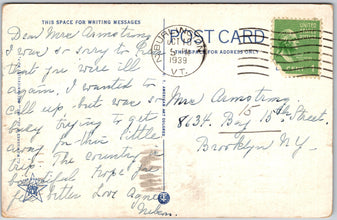 THIS SPACE FOR WRITING MESSAGES
POST CARD
THIS SPACE FOR ADDRESS ONLY
Dear Mrs Armstrong
I was so sorry to hear
that you were ill
again, I wanted to
call up, but was so
busy trying to get
away for this little
trip. The country is
beautiful. Hope I'm
better. Love Agnes
OCT
1939
VT.
Mrs Armstrong
15
8634 Bay 15th Street,
Brooklyn N.Y.